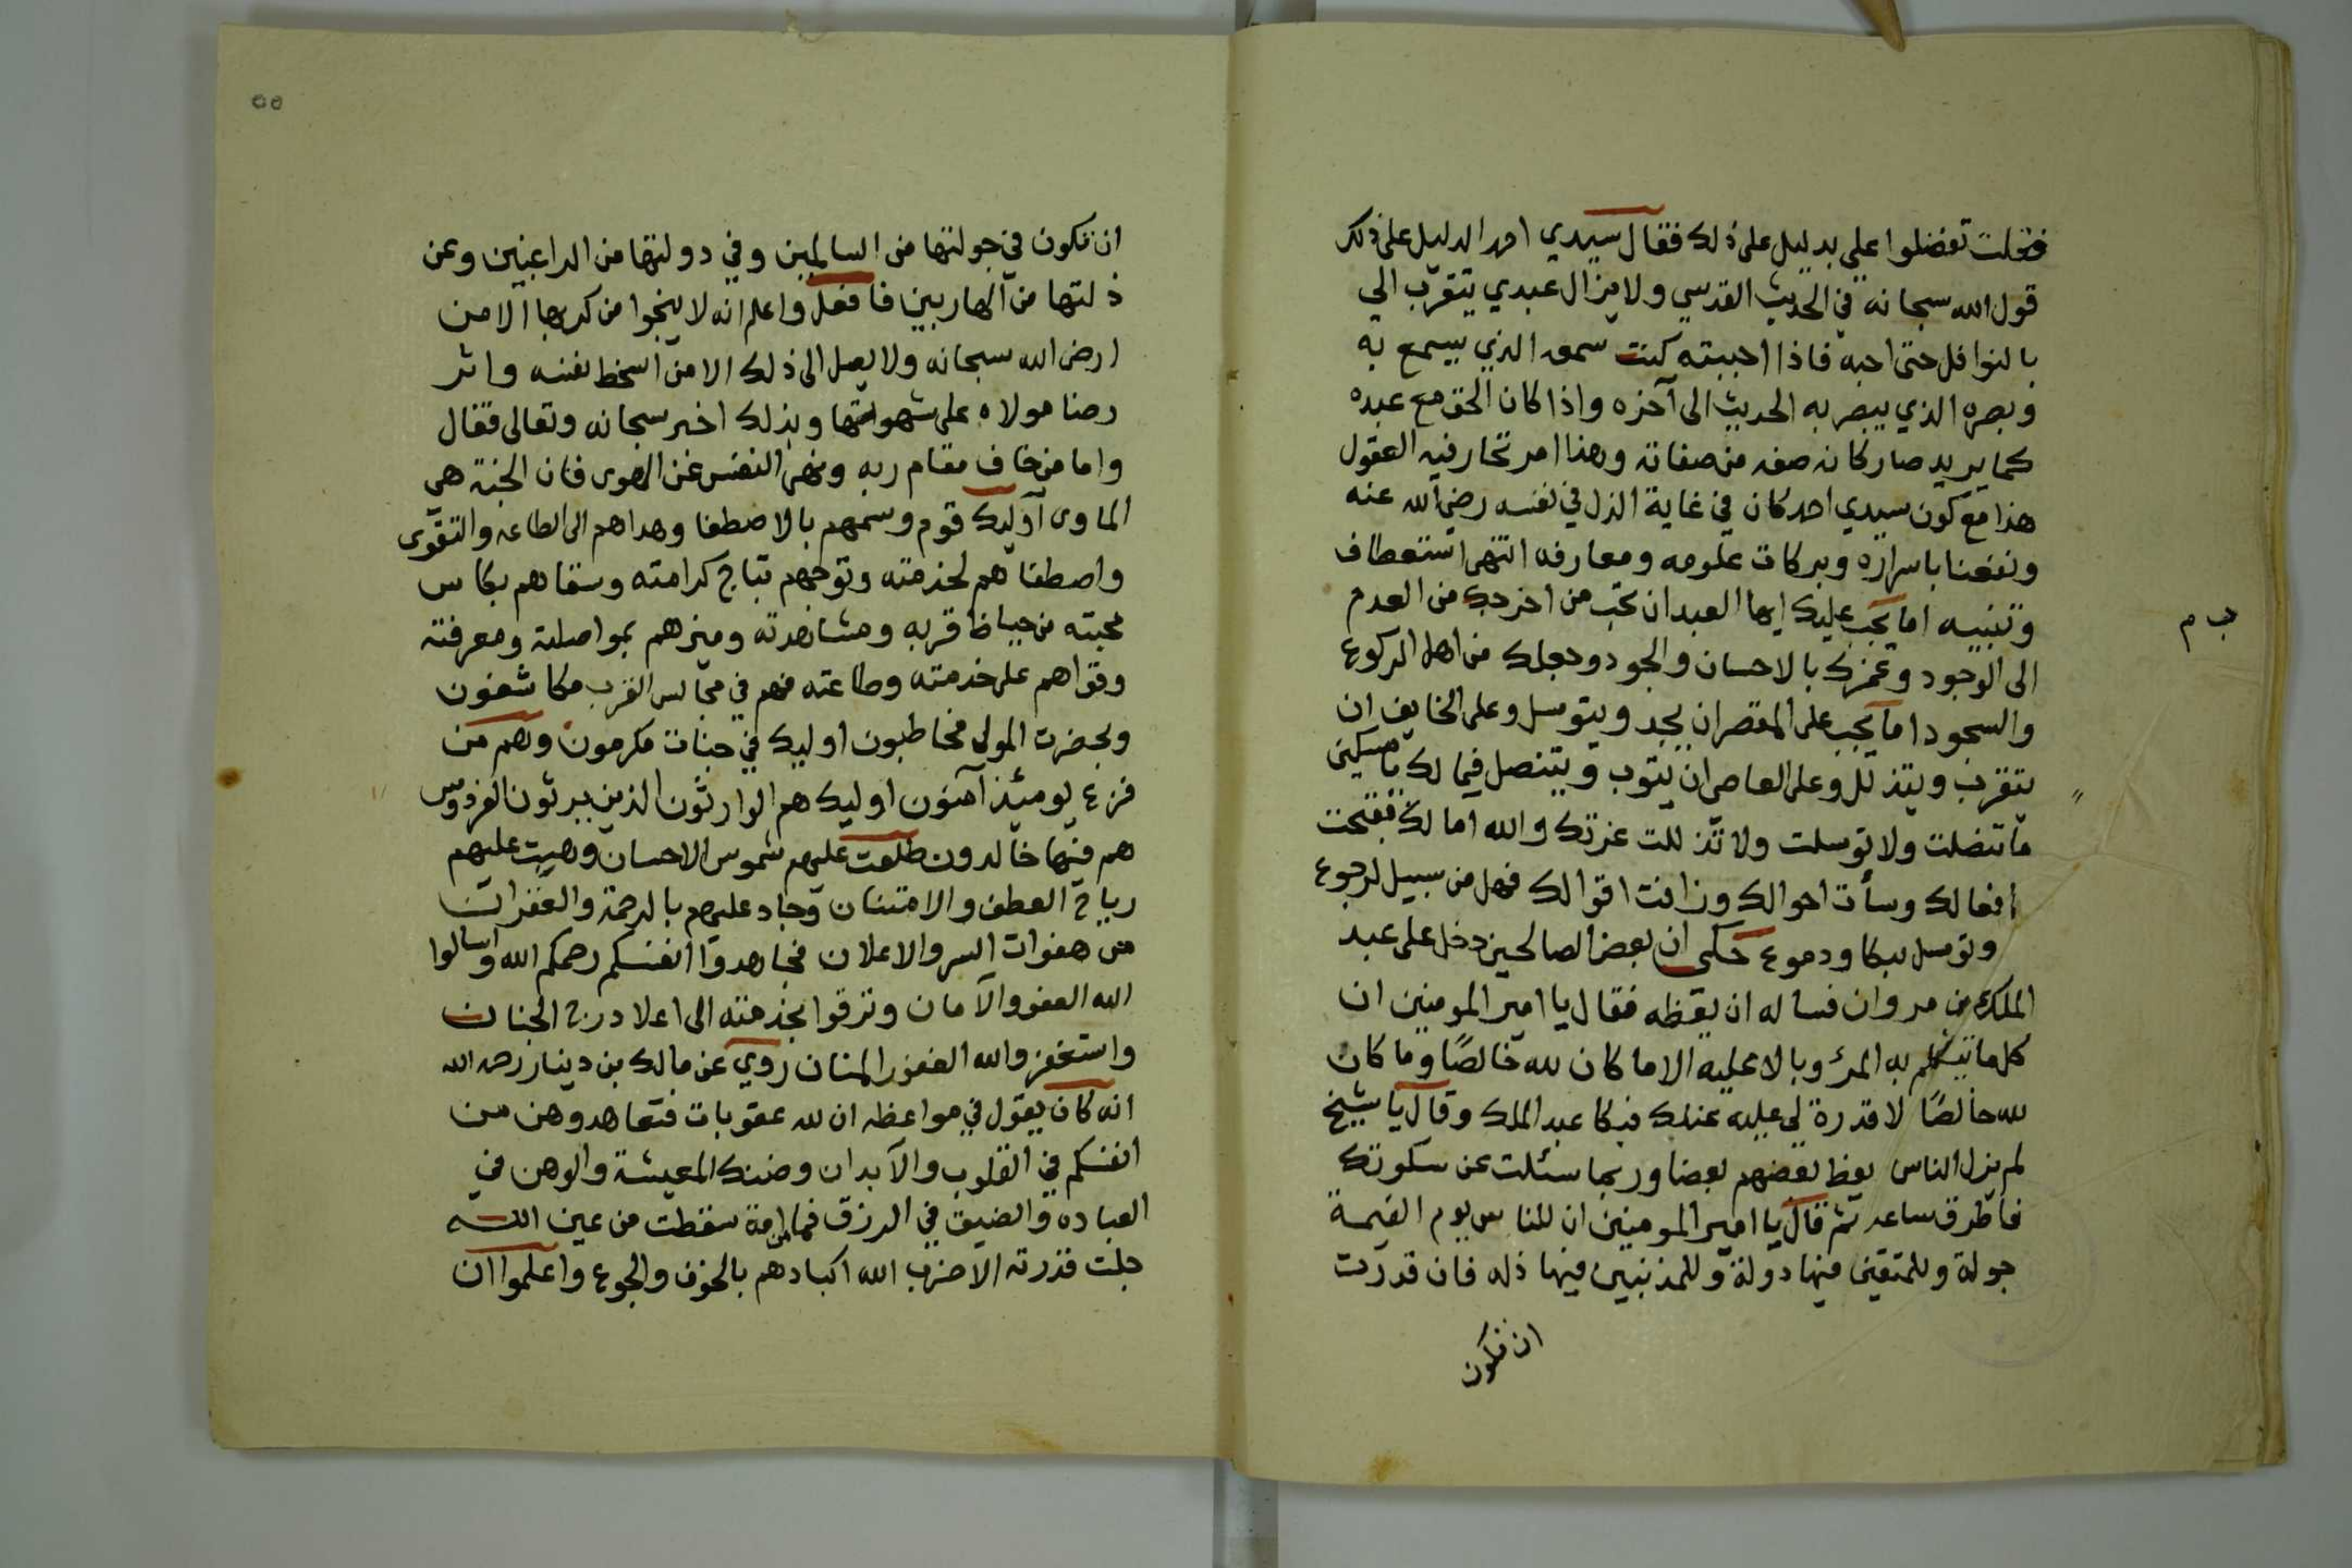 فقلت تفضلوا علي بدليل على ذلك فقال سيدي احمد الدليل على ذلك
قول الله سبحانه في الحديث القدسي ولا يزال عبدي يتقرب الي
بالنوافل حتى احبه فاذا احببته كنت سمعه الذي يسمع به
وبصره الذي يبصر به الحديث الى آخره واذا كان الحق مع عبده
كما يريد صار كانه صفه من صفاته وهذا امر تحار فيه العقول
هذا مع كون سيدي احمد كان في غاية الذل في نفسه رضي الله عنه
ونفعنا باسراره وبركات علومه ومعارفه انتهى استعطاف
وتنبيه اما يجب عليك ايها العبد ان تحب من اخرجك من العدم
الى الوجود وغمرك بالاحسان والجود وجعلك من اهل الركوع
والسجود اما يجب على المقصر ان يجد ويتوسل وعلى الخايف ان
يتقرب ويتذلل وعلى العاصي ان يتوب ويتنصل فيما لك يا مسكين
ما تنصلت ولا توسلت ولا تذللت عزتك والله امالك فقبحت
افعالك وسأت احوالك وزافت اقوالك فهل من سبيل لرجوع
وتوسل ببكا ودموع حكى ان بعض الصالحين دخل على عبد
الملك بن مروان فساله ان يعظه فقال يا امير المومنين ان
كلما يتكلم به المرؤ وبالا عليه الا ما كان لله خالصًا وما كان
لله خالصًا لا قدرة لي عليه عندك فبكا عبد الملك وقال يا شيخ
لم يزل الناس يعظ بعضهم بعضا وربما سئلت عن سكوتك
فاطرق ساعه ثم قال يا امير المومنين ان للناس يوم القيمة
جولة وللمتقين فيها دولة وللمذنبين فيها ذله فان قدرت
ان تكون
ب م
٥٥
ان تكون في جولتها من السالمين وفي دولتها من الراغبين وعن
ذلتها من الهاربين فافعل واعلم انه لا ينجوا من كربها الا من
ارض الله سبحانه ولا يصل الى ذلك الا من اسخط نفسه واثر
رضا مولاه على شهواتها وبذلك اخبر سبحانه وتعالى فقال
واما من خاف مقام ربه ونهى النفس عن الهوى فان الجنة هي
الماوى اوليك قوم وسمهم بالاصطفا وهداهم الى الطاعه والتقوى
واصطفاهم لخدمته وتوجهم بتاج كرامته وسقاهم بكاس
محبته من حياظ قربه ومشاهدته وميزهم بمواصلته ومعرفته
وقواهم على خدمته وطاعته فهم في مجالس القرب مكاشفون
وبحضرت المولى مخاطبون اوليك في جنات مكرمون وهم من
فزع يومئذ آمنون اوليك هم الوارثون الذين يرثون الفردوس
هم فيها خالدون طلعت عليهم شموس الاحسان وهبت عليهم
رياح العطف والامتنان وجاد عليهم بالرحمة والغفران
من هفوات السر والاعلان فجاهدوا انفسكم رحمكم الله واسالوا
الله العفو والامان وترقوا بخدمته الى اعلا درج الجنان
واستغفروالله الغفور المنان روي عن مالك بن دينار رحمه الله
انه كان يقول في مواعظه ان لله عقوبات فتعاهدوهن من
انفسكم في القلوب والابدان وضنك المعيشة والوهن في
العباده والضيق في الرزق فما من امة سقطت من عين الله
جلت قدرته الا ضرب الله اكبادهم بالخوف والجوع واعلموا ان